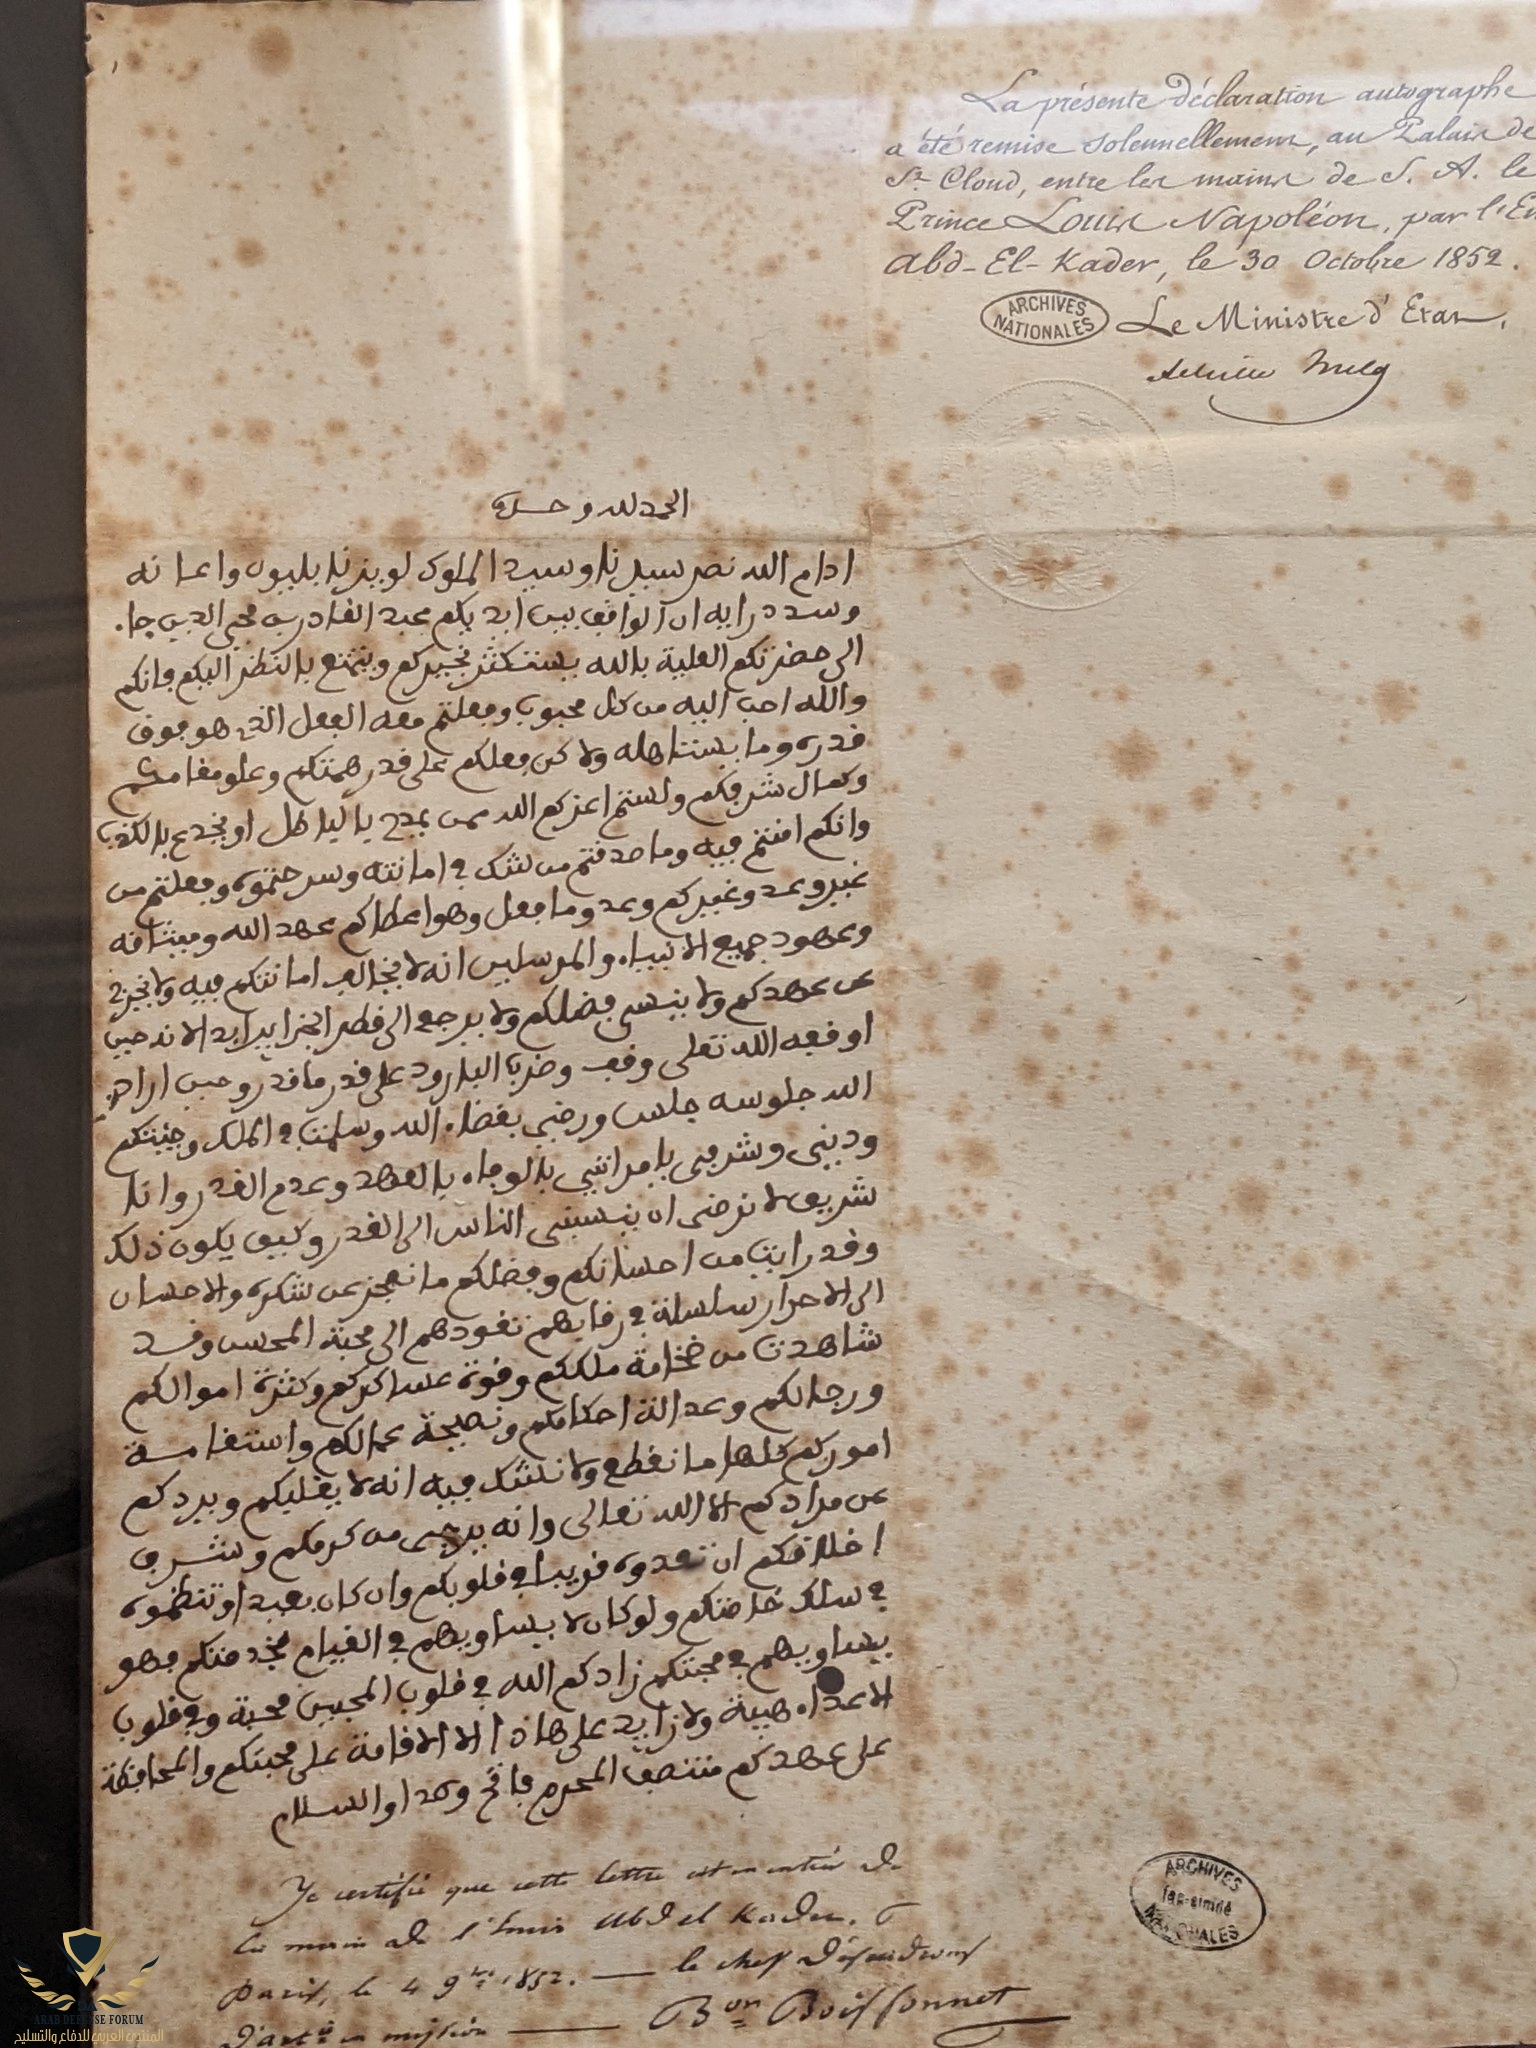 La présente déclaration autographe
a été remise solennellement, au Palais de
St Cloud, entre les mains de S. A. le
Prince Louis Napoléon, par l'E
Abd-El-Kader, le 30 Octobre 1852.
ARCHIVES
NATIONALES
Le Ministre d'Etat,
الحمد لله وحده
ادام الله نصر سيدنا وسيد الملوك لويز نابليون واعانه
وسدد رايه ان الواقف بين ايديكم عبد القادر بن محي الدين جاء
الى حضرتكم العلية بالله يستكثر بخيركم ويتمتع بالنظر اليكم فانكم
والله احب اليه من كل محبوب وفعلتم معه الفعل الذي هو فوق
قدره وما يستاهله ولاكن فعلكم على قدر همتكم وعلو مقامكم
وكمال شرفكم ولستم اعزكم الله ممن يمدح بالباطل او يخدع بالكذب
وانكم امنتم فيه وما صدقتم من شك في امانته وسرحتموه وفعلتم من
غير وعد وغيركم وعد وما فعل وهو اعطاكم عهد الله وميثاقه
وعهود جميع الانبياء والمرسلين انه لا يخالف امانتكم فيه ولا يخرج
عن عهدكم ولا ينسى فضلكم ولا يرجع الى قطر الجزاير ابدا لانه حين
اوقفه الله تعلى وقف وضرب البارود على قدر ما قدر وحين اراد
الله جلوسه جلس ورضي بقضاء الله وسلمت في الملك وجيتكم
وديني وشرفي يامرانني بالوفاء بالعهد وعدم الغدر وانا
شريف لا نرضى ان ينسبني الناس الى الغدر وكيف يكون ذلك
وقد رايت من احسانكم وفضلكم ما نعجز عن شكره والاحسان
الى الاحرار سلسلة في رقابهم تقودهم الى محبة المحسن وقد
شاهدت من ضخامة ملككم وقوة عساكركم وكثرة اموالكم
ورجالكم وعدالة احكامكم ونصيحة عمالكم واستقامة
اموركم كلها ما نقطع ولا نشك فيه انه لا يغلبكم ويردكم
عن مرادكم الا الله تعالى وانه يرجى من كرمكم وشرف
اخلاقكم ان تعدوه قريبا في قلوبكم وان كان بعيدا وتنظموه
في سلك خاصتكم ولو كان لا يساويهم في القيام بخدمتكم فهو
يساويهم في محبتكم زادكم الله في قلوب المحبين محبة وفي قلوب
الاعداء هيبة ولا زايد على هاذا الا الاقامة على محبتكم والمحافظة
على عهدكم منتصف المحرم والسلام
Je certifie que cette lettre est en entier de
la main de l'Emir Abd el Kader.
Paris, le 4 9bre 1852. — le chef d'escadrons
d'artie en mission — Bon Boissonnet
ARCHIVES
fac-similé
NATIONALES
ARAB DEFENSE FORUM
المنتدى العربي للدفاع والتسليح